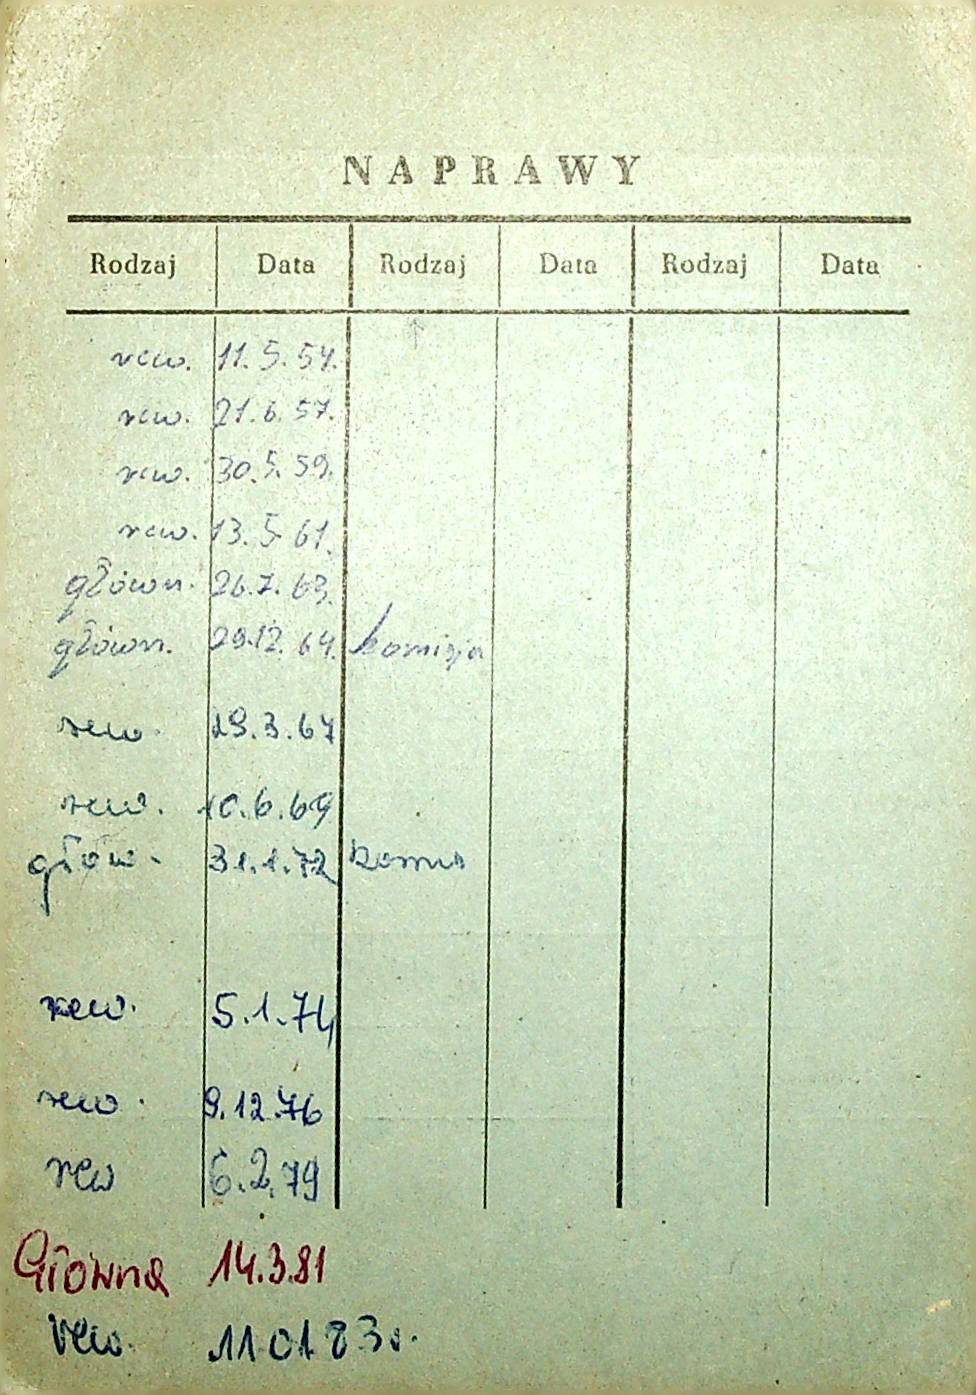 NAPRAWY
Rodzaj Data Rodzaj Data Rodzaj Data
rew. 11.5.54.
rew. 21.6.57.
rew. 30.5.59.
rew. 13.5.61.
główn. 26.7.63.
główn. 29.12.64. komisja
rew. 29.3.67
rew. 10.6.69
głów. 31.1.72 komis
rew. 5.1.74
rew. 9.12.76
rew 6.2.79
Główna 14.3.81
rew. 11 01 83r.